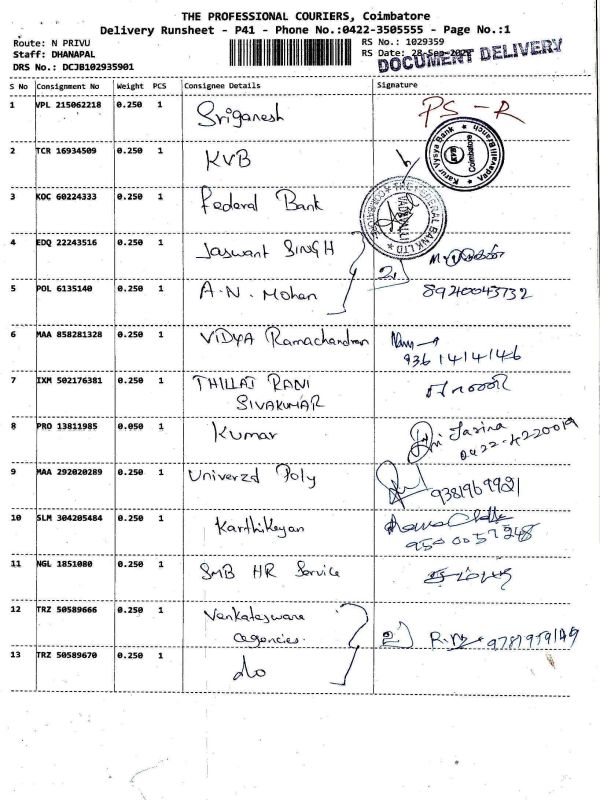 THE PROFESSIONAL COURIERS, Coimbatore
Delivery Runsheet - P41 - Phone No.:0422-3505555 - Page No.:1
Route: N PRIVU
RS No.: 1029359
Staff: DHANAPAL
RS Date: 28-Sep-
DOCUMENT DELIVERY
DRS No.: DCJB102935901
S No Consignment No Weight PCS Consignee Details Signature
1 VPL 215062218 0.250 1 Sriganesh PS-R
2 TCR 16934509 0.250 1 KVB
Karur Vysya Bank
Vadavalli Branch
KVB
Coimbatore
3 KOC 60224333 0.250 1 Federal Bank
THE FEDERAL BANK LTD
VADAVALLI
4 EDQ 22243516 0.250 1 Jaswant SINGH 2
5 POL 6135140 0.250 1 A.N. Mohan 8920043732
6 MAA 858281328 0.250 1 ViDYA Ramachandran
9361414146
7 IXM 502176381 0.250 1 THILLAI RANI
SIVAKUMAR
8 PRO 13811985 0.050 1 Kumar
0422-4220019
9 MAA 292020289 0.250 1 Univerzd Poly 9381969921
10 SLM 304205484 0.250 1 Karthikeyan
9500057248
11 NGL 1851080 0.250 1 SMB HR Service
12 TRZ 50589666 0.250 1 Venkateswara
agencies. 2 9781959149
13 TRZ 50589670 0.250 1 do